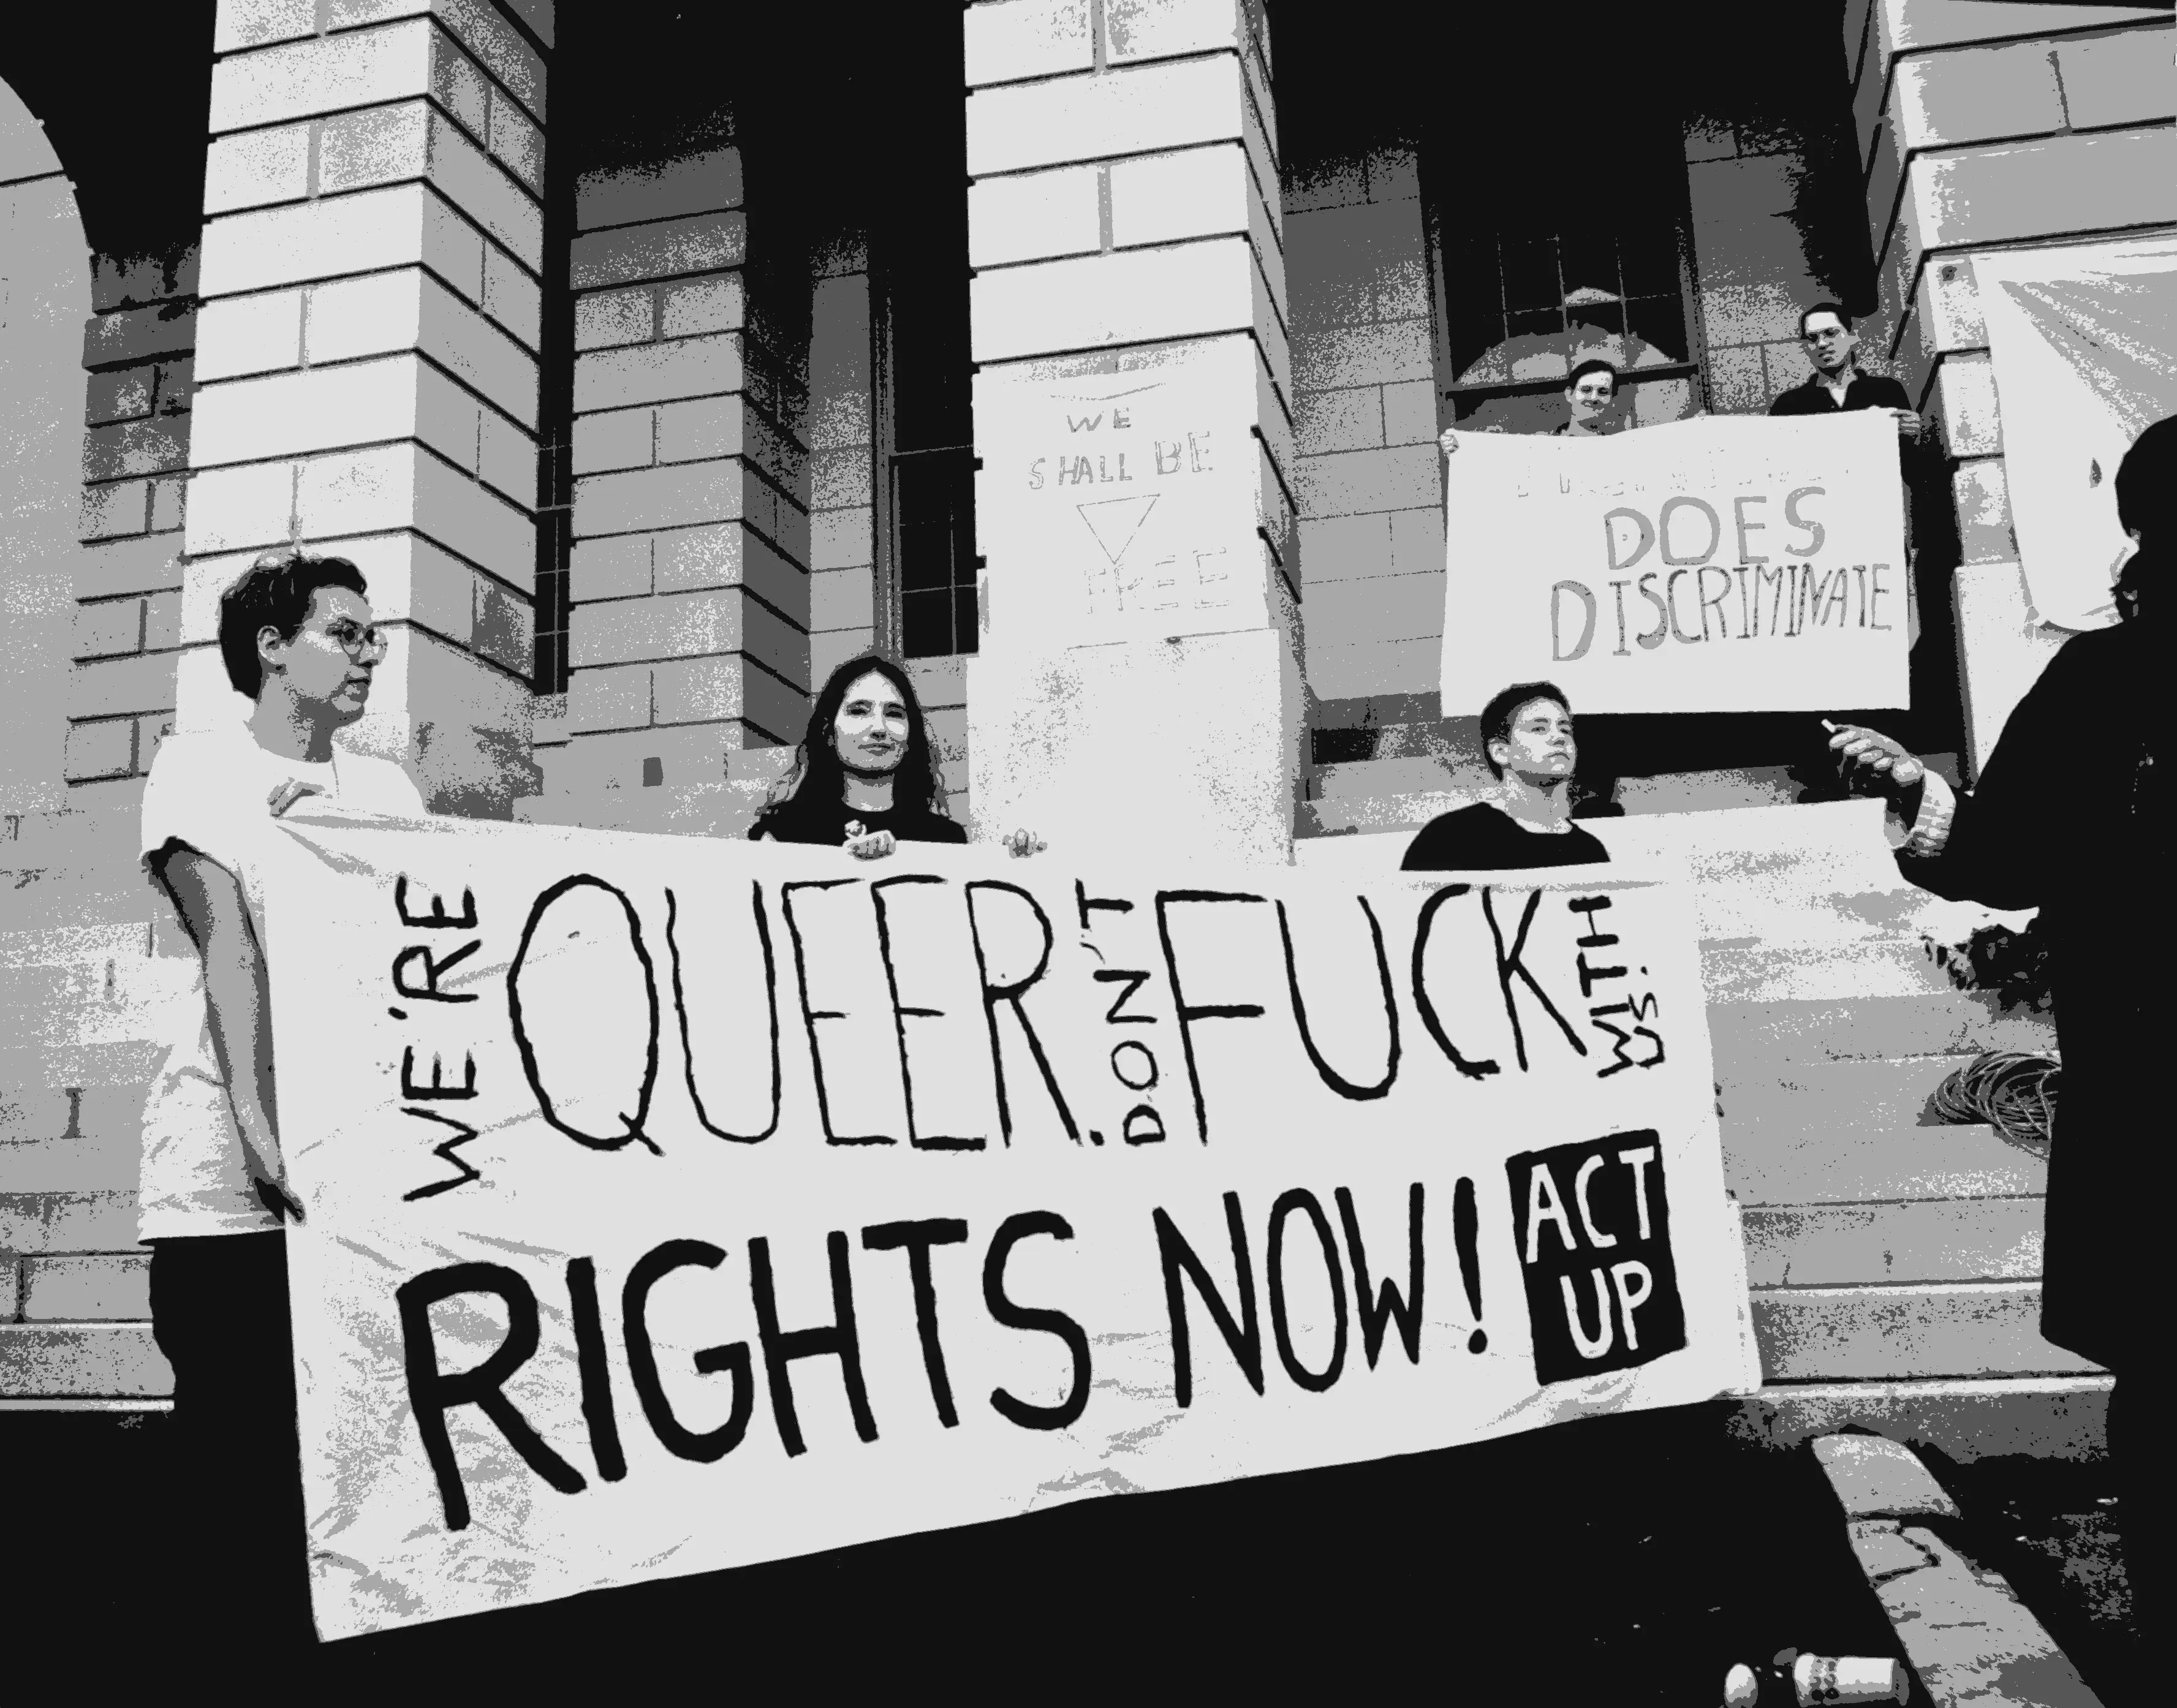 WE
SHALL BE
FREE
DOES
DISCRIMINATE
WE'RE QUEER. DON'T FUCK WITH US.
RIGHTS NOW!
ACT
UP